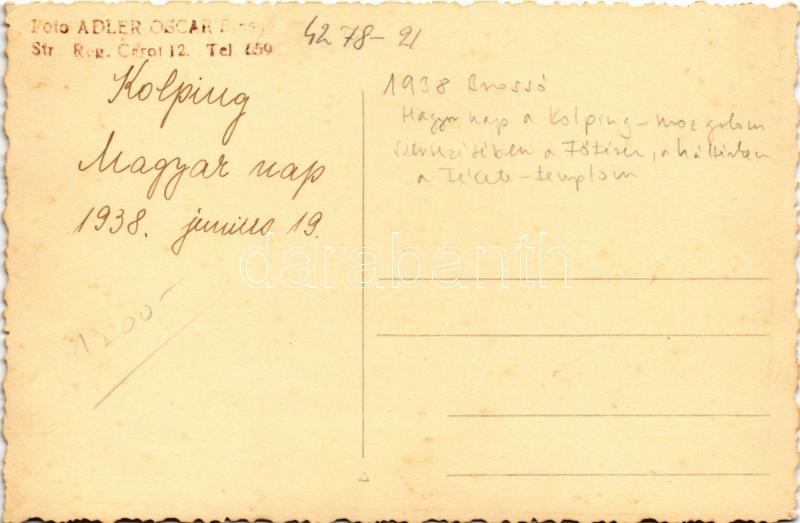 Foto ADLER OSCAR
Str. Reg. Carol 12. Tel 659
4278-21
Kolping
Magyar nap
1938. junius 19.
1200-
1938 Brassó
Magyar nap a Kolping-mozgalom
szervezésében a Főtéren, a háttérben
a Fekete-templom
darabanth